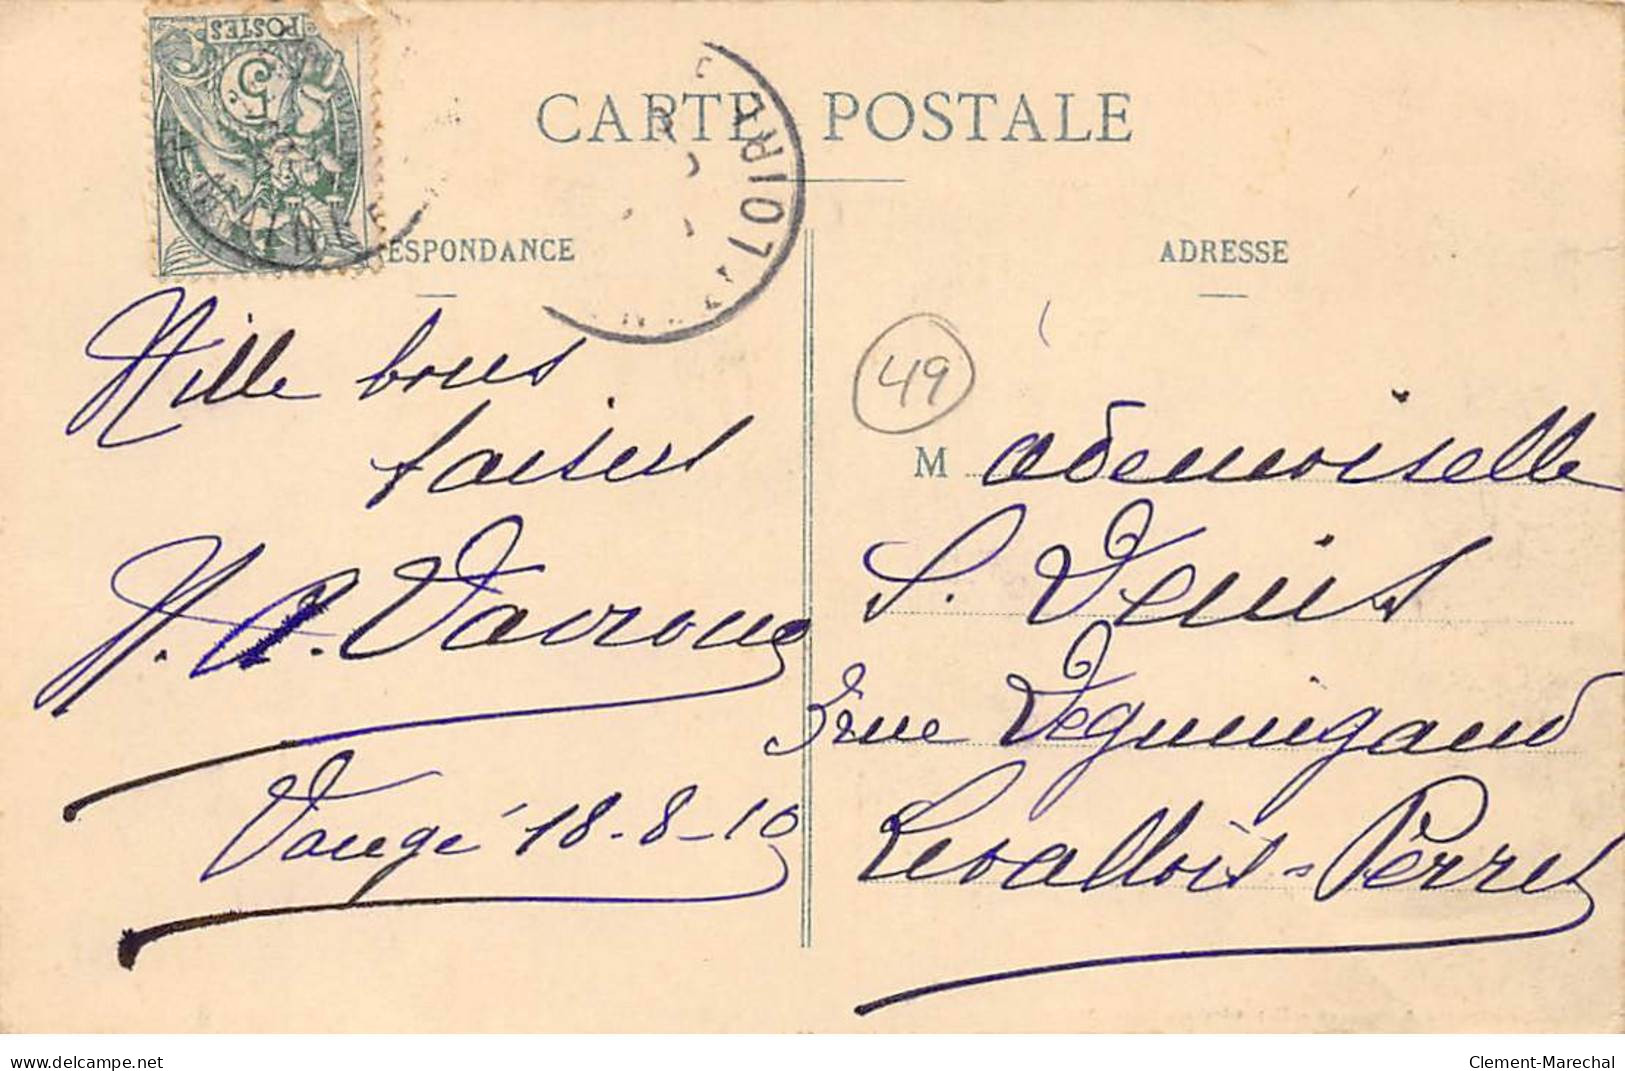 POSTES
5
CARTE POSTALE
LOIRE
ESPONDANCE
ADRESSE
49
Mille bons
baisers
Vaugé 18-8-10
Mademoiselle
S. Denis
3 rue Deguingand
Levallois-Perret
delcampe.net
Clement-Marechal